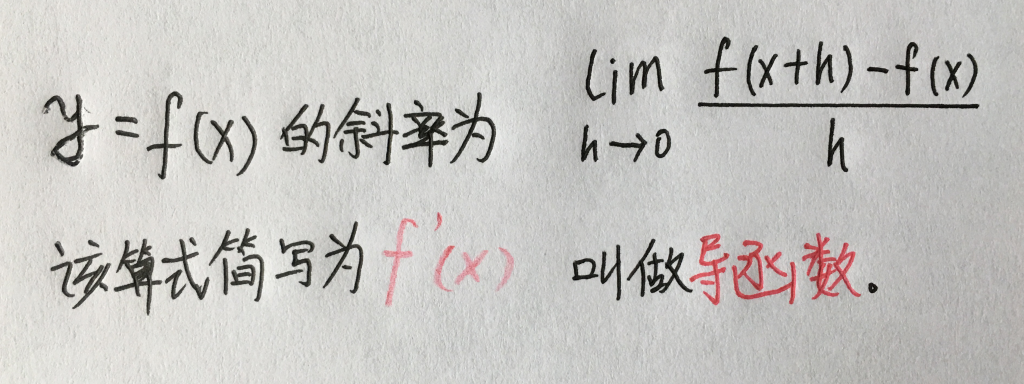 y=f(x) 的斜率为 lim h→0 f(x+h)-f(x) / h
该算式简写为 f'(x) 叫做导函数。